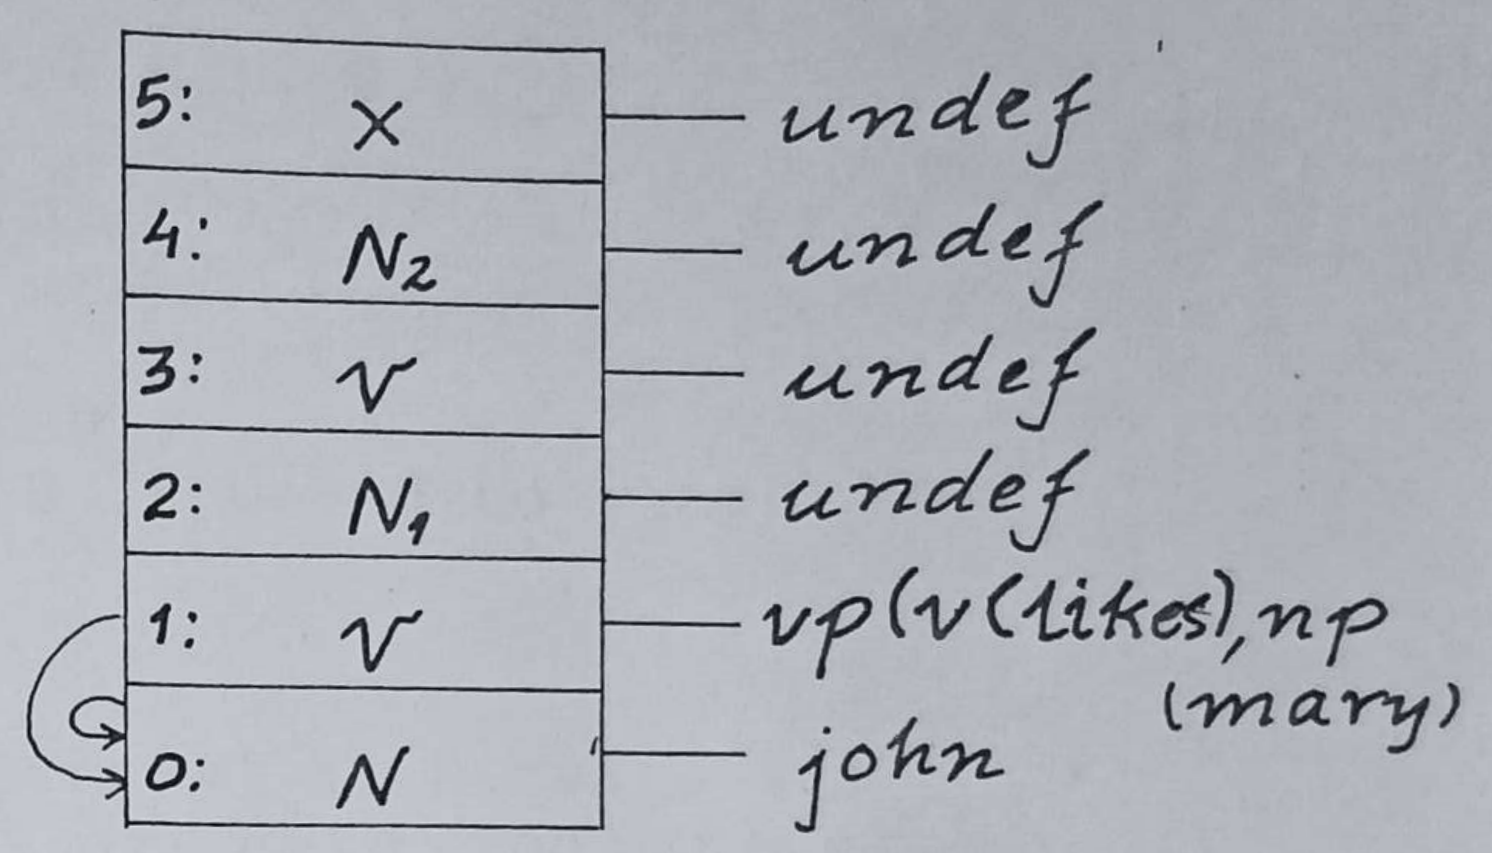 5: X undef
4: N₂ undef
3: V undef
2: N₁ undef
1: V vp(v(likes),np
(mary)
0: N john